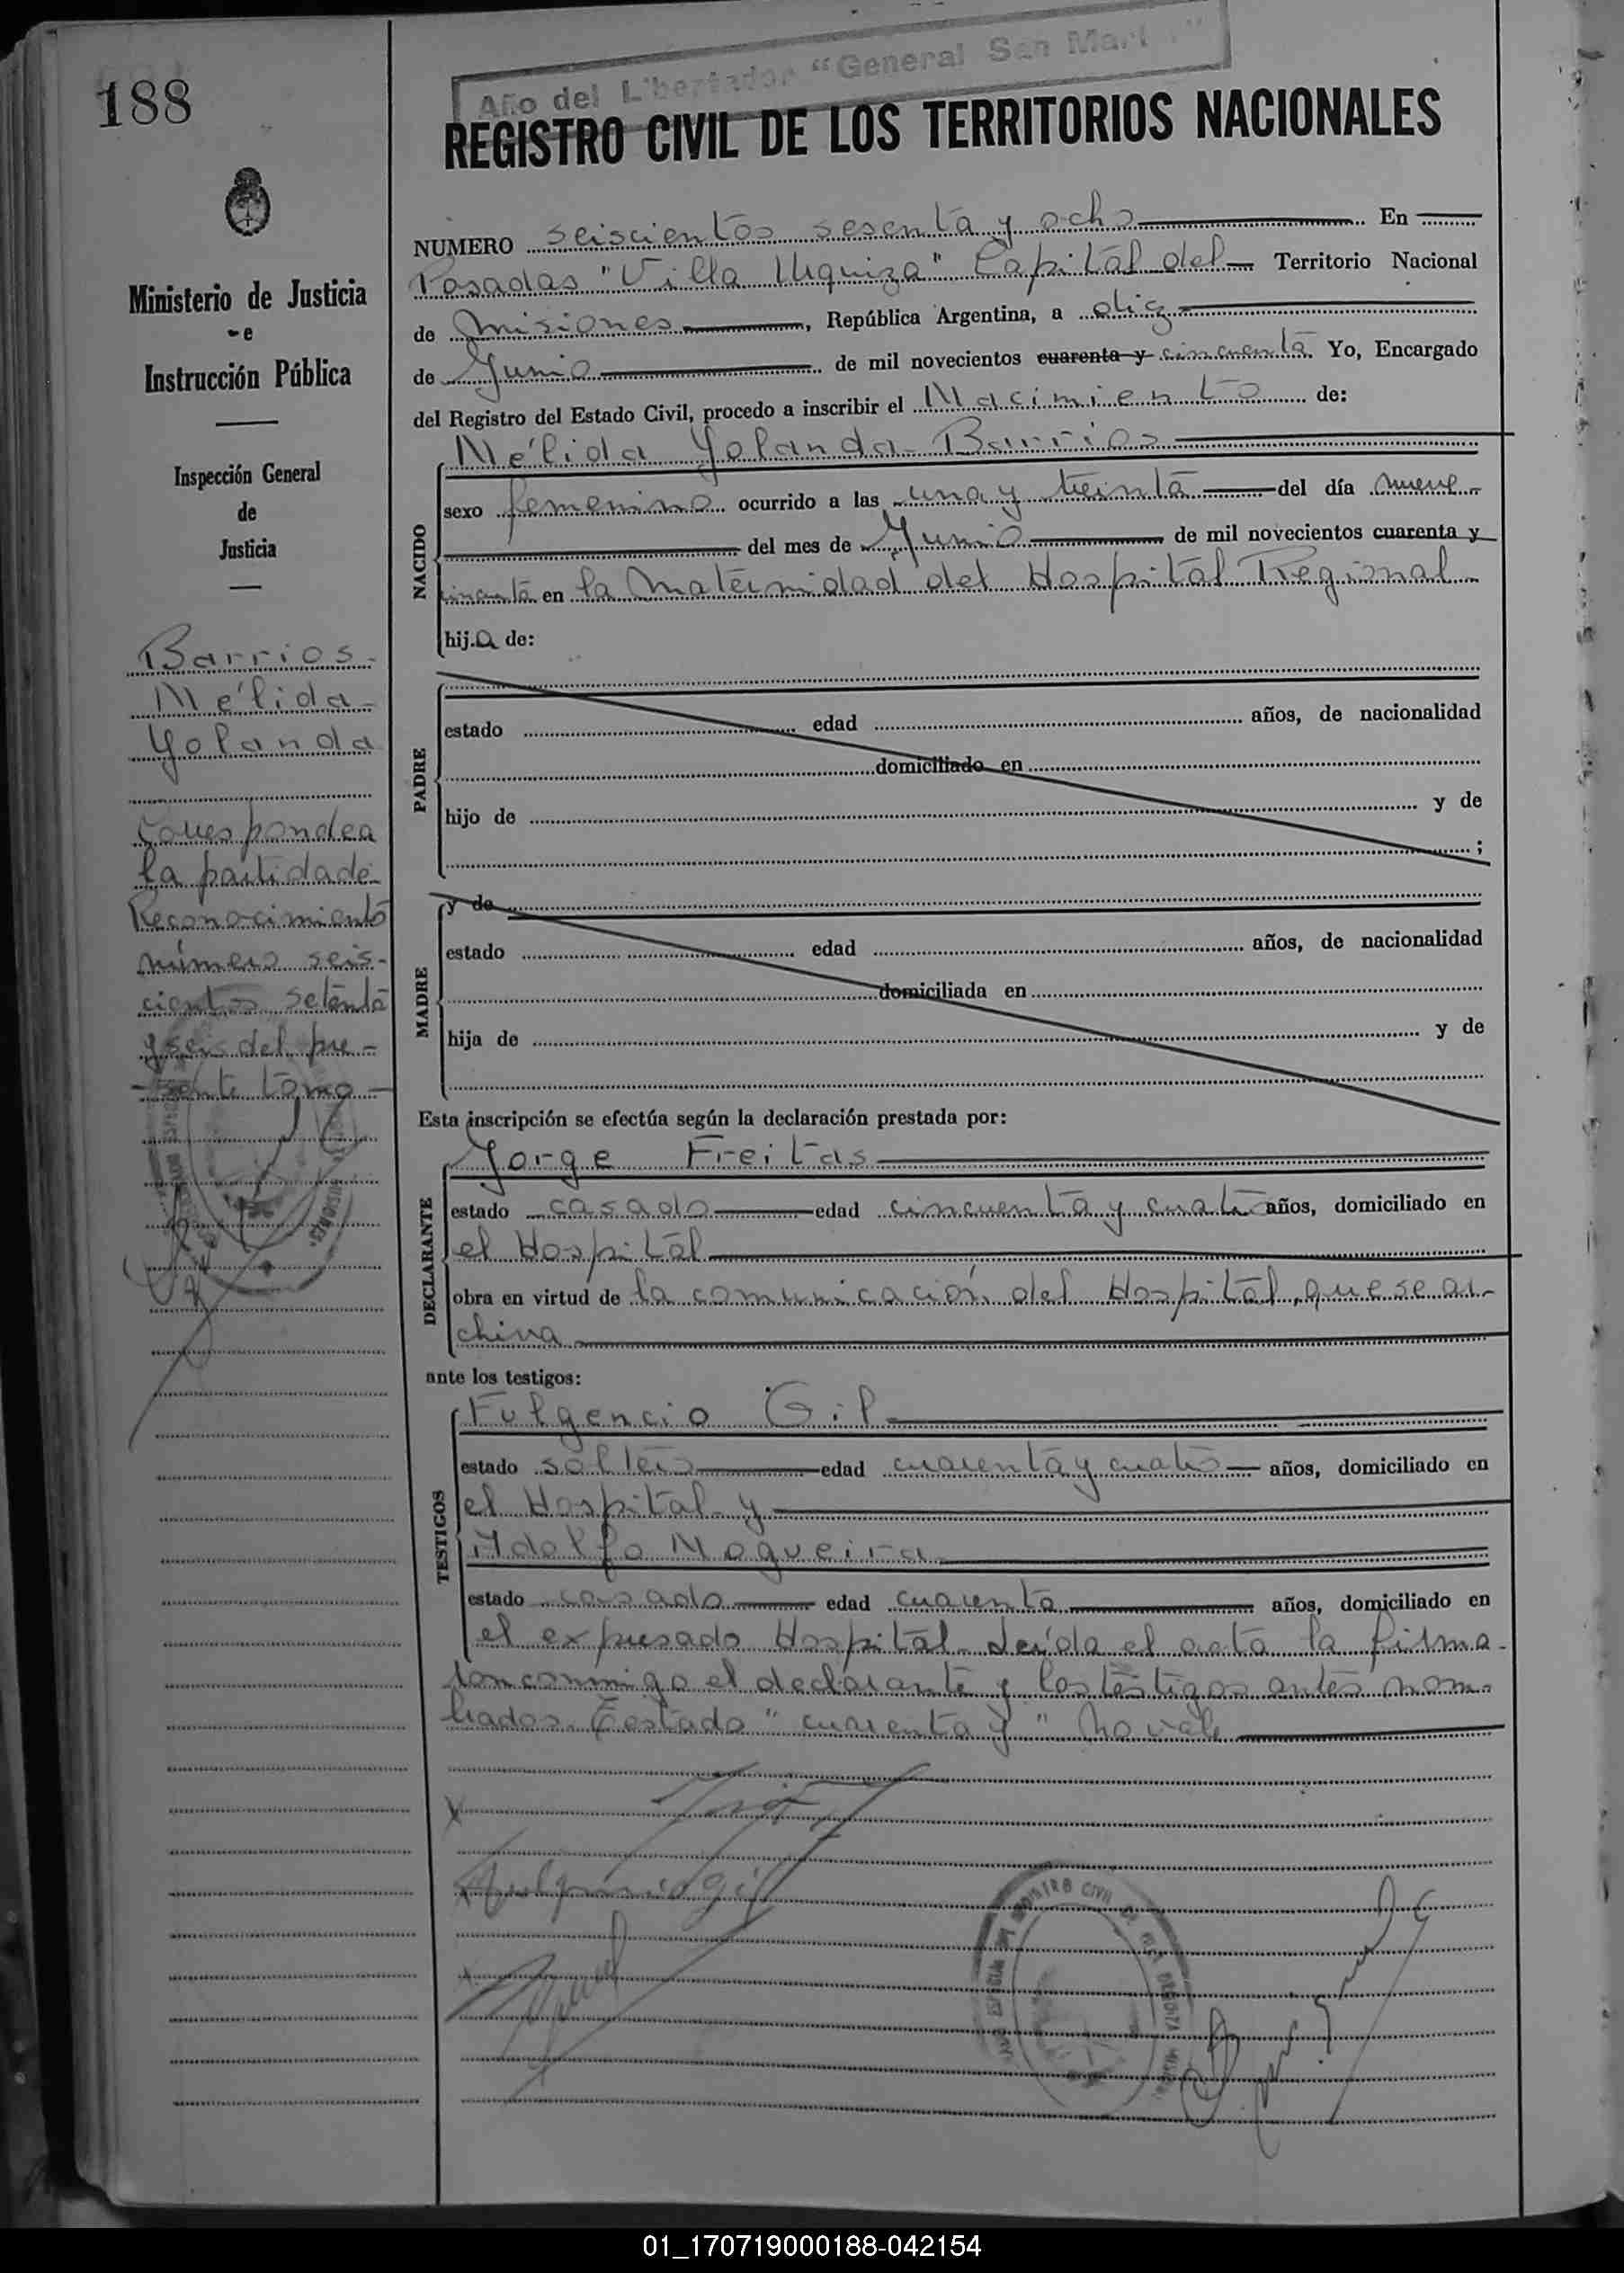 188
Año del Libertador "General San Martín"
REGISTRO CIVIL DE LOS TERRITORIOS NACIONALES
NUMERO seiscientos sesenta y ocho En
Posadas "Villa Urquiza" Capital del Territorio Nacional
de Misiones, República Argentina, a diez
de Junio de mil novecientos cuarenta y cincuenta Yo, Encargado
del Registro del Estado Civil, procedo a inscribir el Nacimiento de:
Ministerio de Justicia
e
Instrucción Pública
Inspección General
de
Justicia
Barrios
Nélida
Yolanda
Corresponde a
la partida de
Reconocimiento
número seis-
cientos setenta
y seis del pre-
sente tomo
NACIDO
Nélida Yolanda Barrios
sexo femenino ocurrido a las una y treinta del día nueve
del mes de Junio de mil novecientos cuarenta y
cincuenta en la Maternidad del Hospital Regional
hija de:
PADRE
estado edad años, de nacionalidad
domiciliado en
hijo de y de
;
MADRE
y de
estado edad años, de nacionalidad
domiciliada en
hija de y de
Esta inscripción se efectúa según la declaración prestada por:
DECLARANTE
Jorge Freitas
estado casado edad cincuenta y cuatro años, domiciliado en
el Hospital
obra en virtud de la comunicación del Hospital, que se ar-
chiva
ante los testigos:
TESTIGOS
Fulgencio Gil
estado soltero edad cuarenta y cuatro años, domiciliado en
el Hospital y
Adolfo Nogueira
estado casado edad cuarenta años, domiciliado en
el expresado Hospital. Leída el acta la firma-
ron conmigo el declarante y los testigos antes nom-
brados. Testado "cuarenta y" no vale
REGISTRO CIVIL
01_170719000188-042154